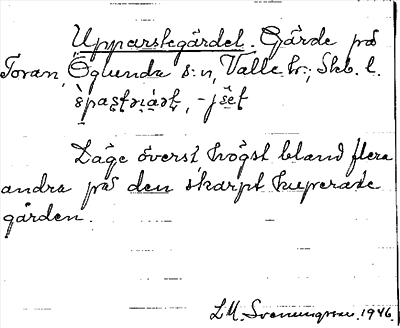 Upparstegärdet. Gärde på
Toran, Öglunda s:n, Valle hr., Skb. l.
Läge överst, högst bland flera
andra på den skarpt kuperade
gården.
L.M. Svenungsson. 1946.